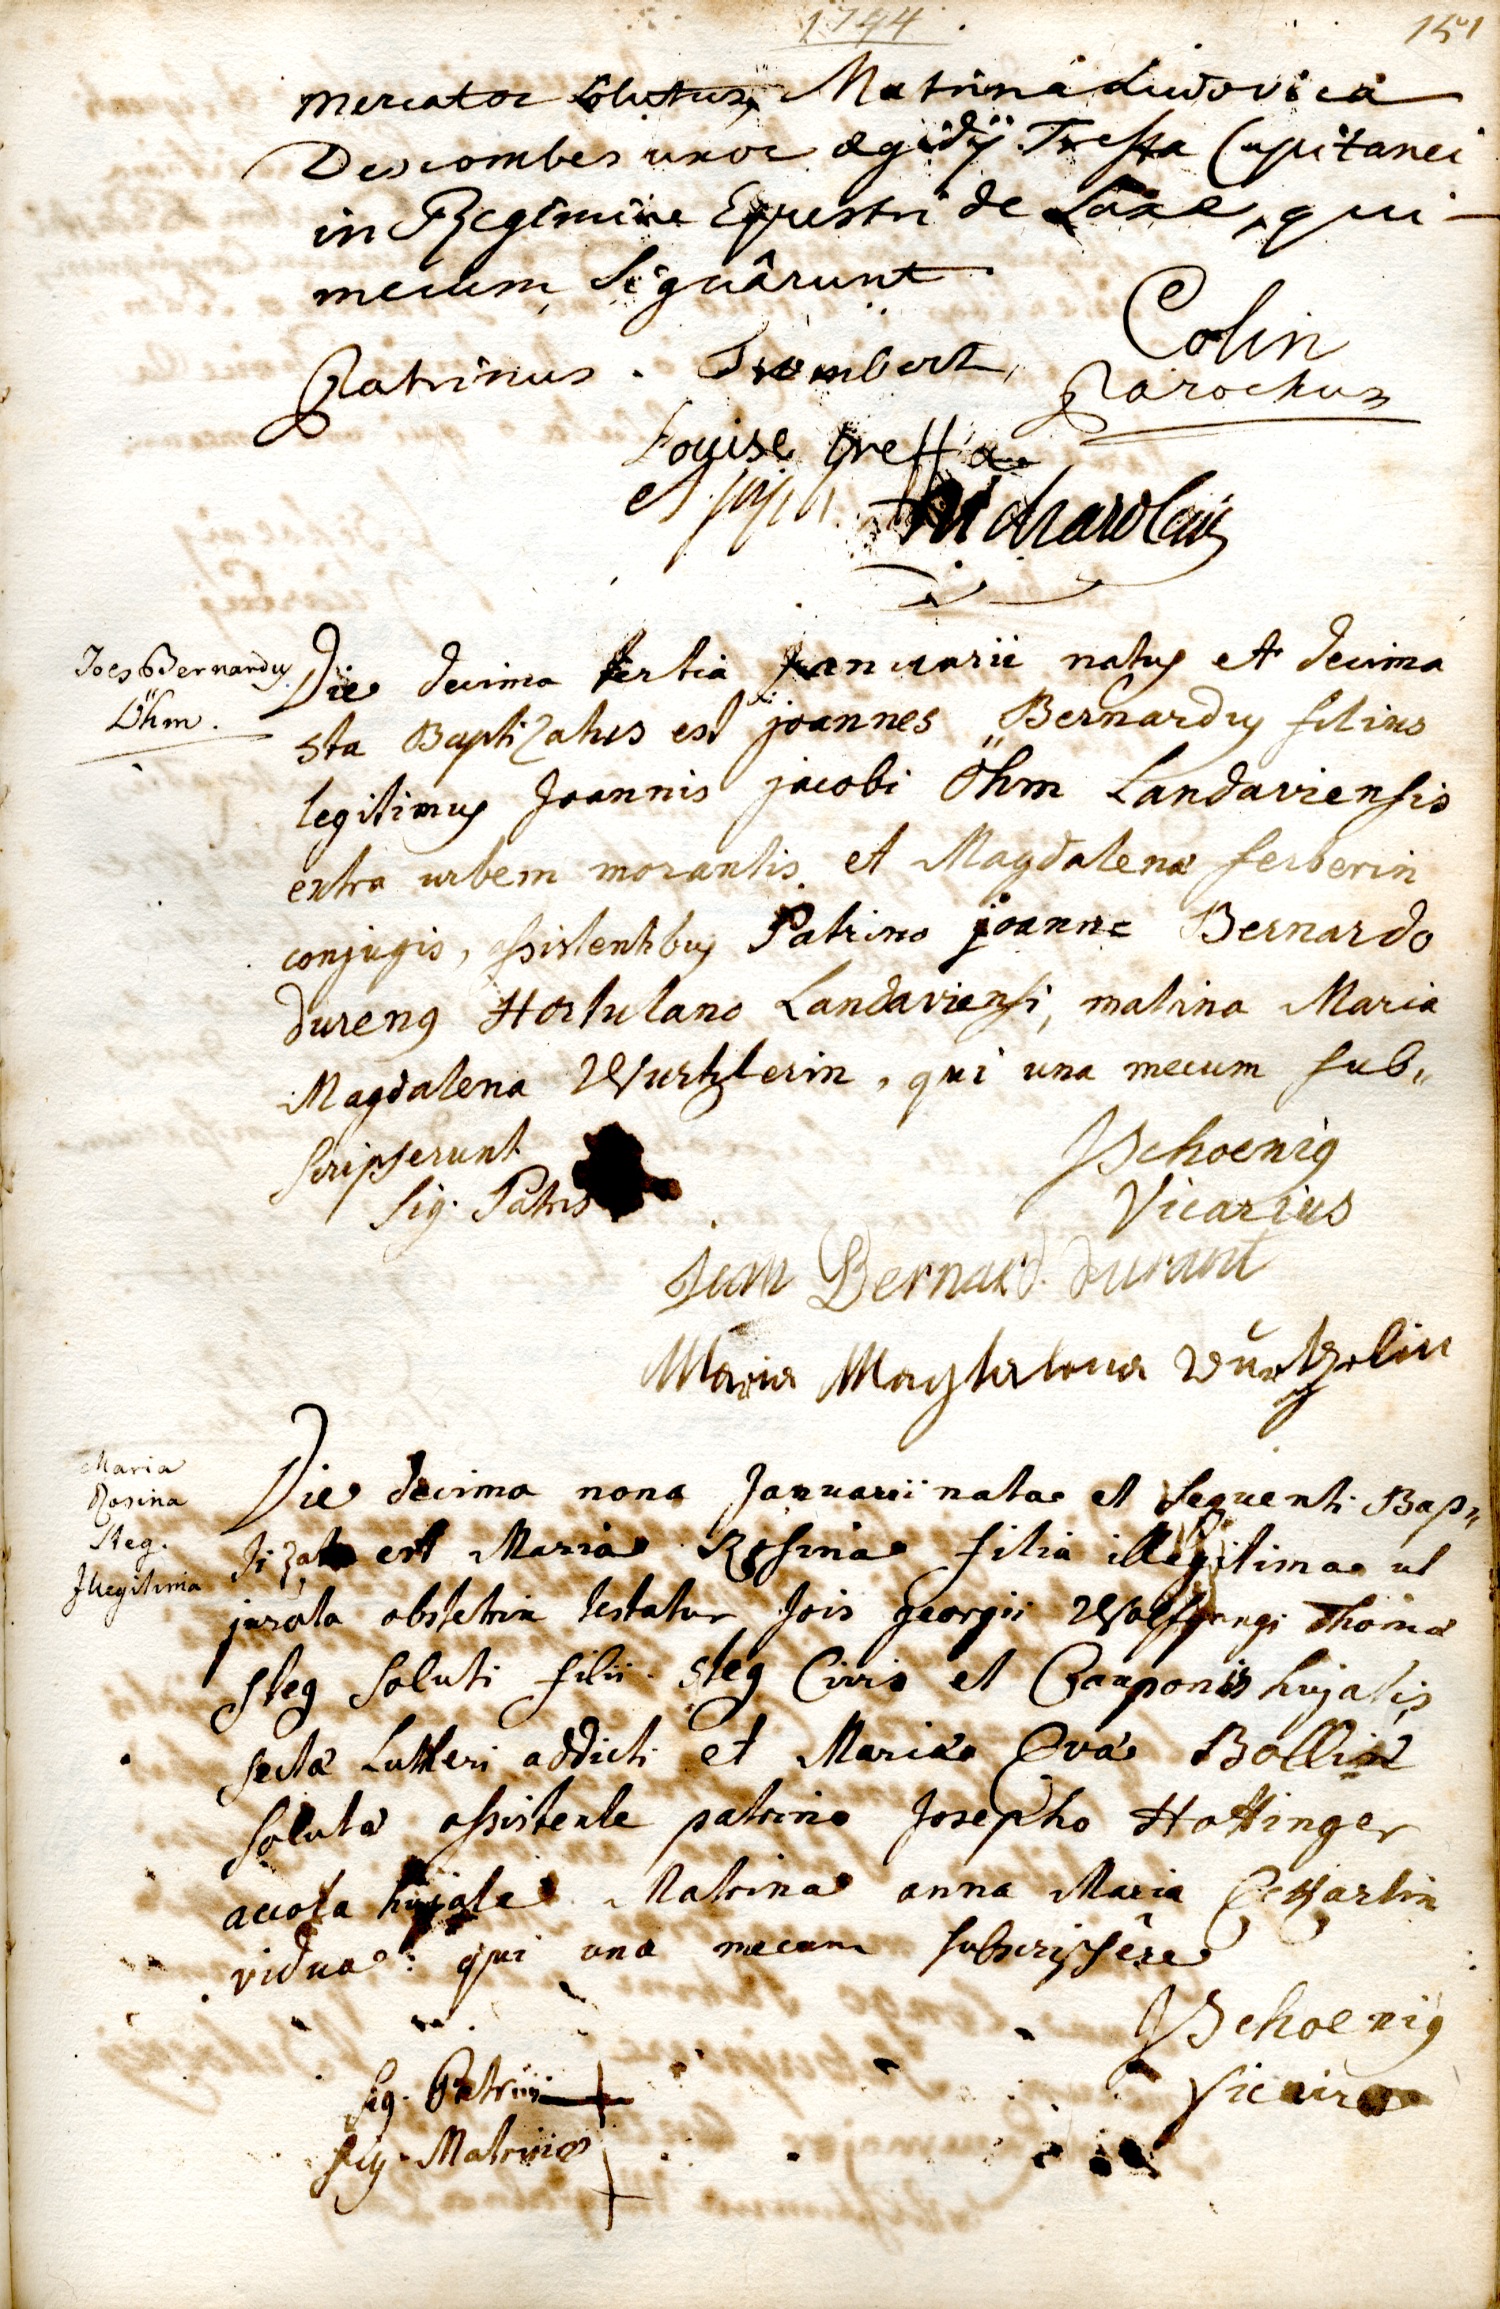 1744.
151
mercator solutus, Matrina Ludovica
Descombes uxor ægidÿ Tressa Capitanei
in Regimine Equestri de
qui
mecum signârunt
Colin
Parochus
Patrinus. Trembert,
Louise tressa
Joes Bernardus
Öhm.
Die decima tertia januarii natus et decima
sta Baptizatus est joannes Bernardus filius
legitimus Joannis jacobi Öhm Landaviensis
extra urbem morantis et Magdalena ferberin
conjugis, assistentibus Patrino joanne Bernardo
dureng Hortulano Landaviensi, matrina Maria
Magdalena Wurtzlerin, qui una mecum sub„
scripserunt
Schoenig
Vicarius
Sig. Patris
jean Bernard durant
Maria Magdalena
Maria
Rosina
Steg.
Illegitima
Die decima nona Januarii nata et sequenti Bap„
tizata est Maria Rosina filia illegitima ut
jurata obstetrix testatur Jois georgii Wolfgangi Thoma
Steg soluti filii Steg Civis et Cauponis hujatis
secta Lutheri addicti et Maria Eva Bollin
soluta assistente patrino Josepho Hottinger
accola hujate Matrina anna Maria
vidua: qui una mecum subscripsêre
Schoenig
Sig. Patrini +
Sig. Matrinæ +